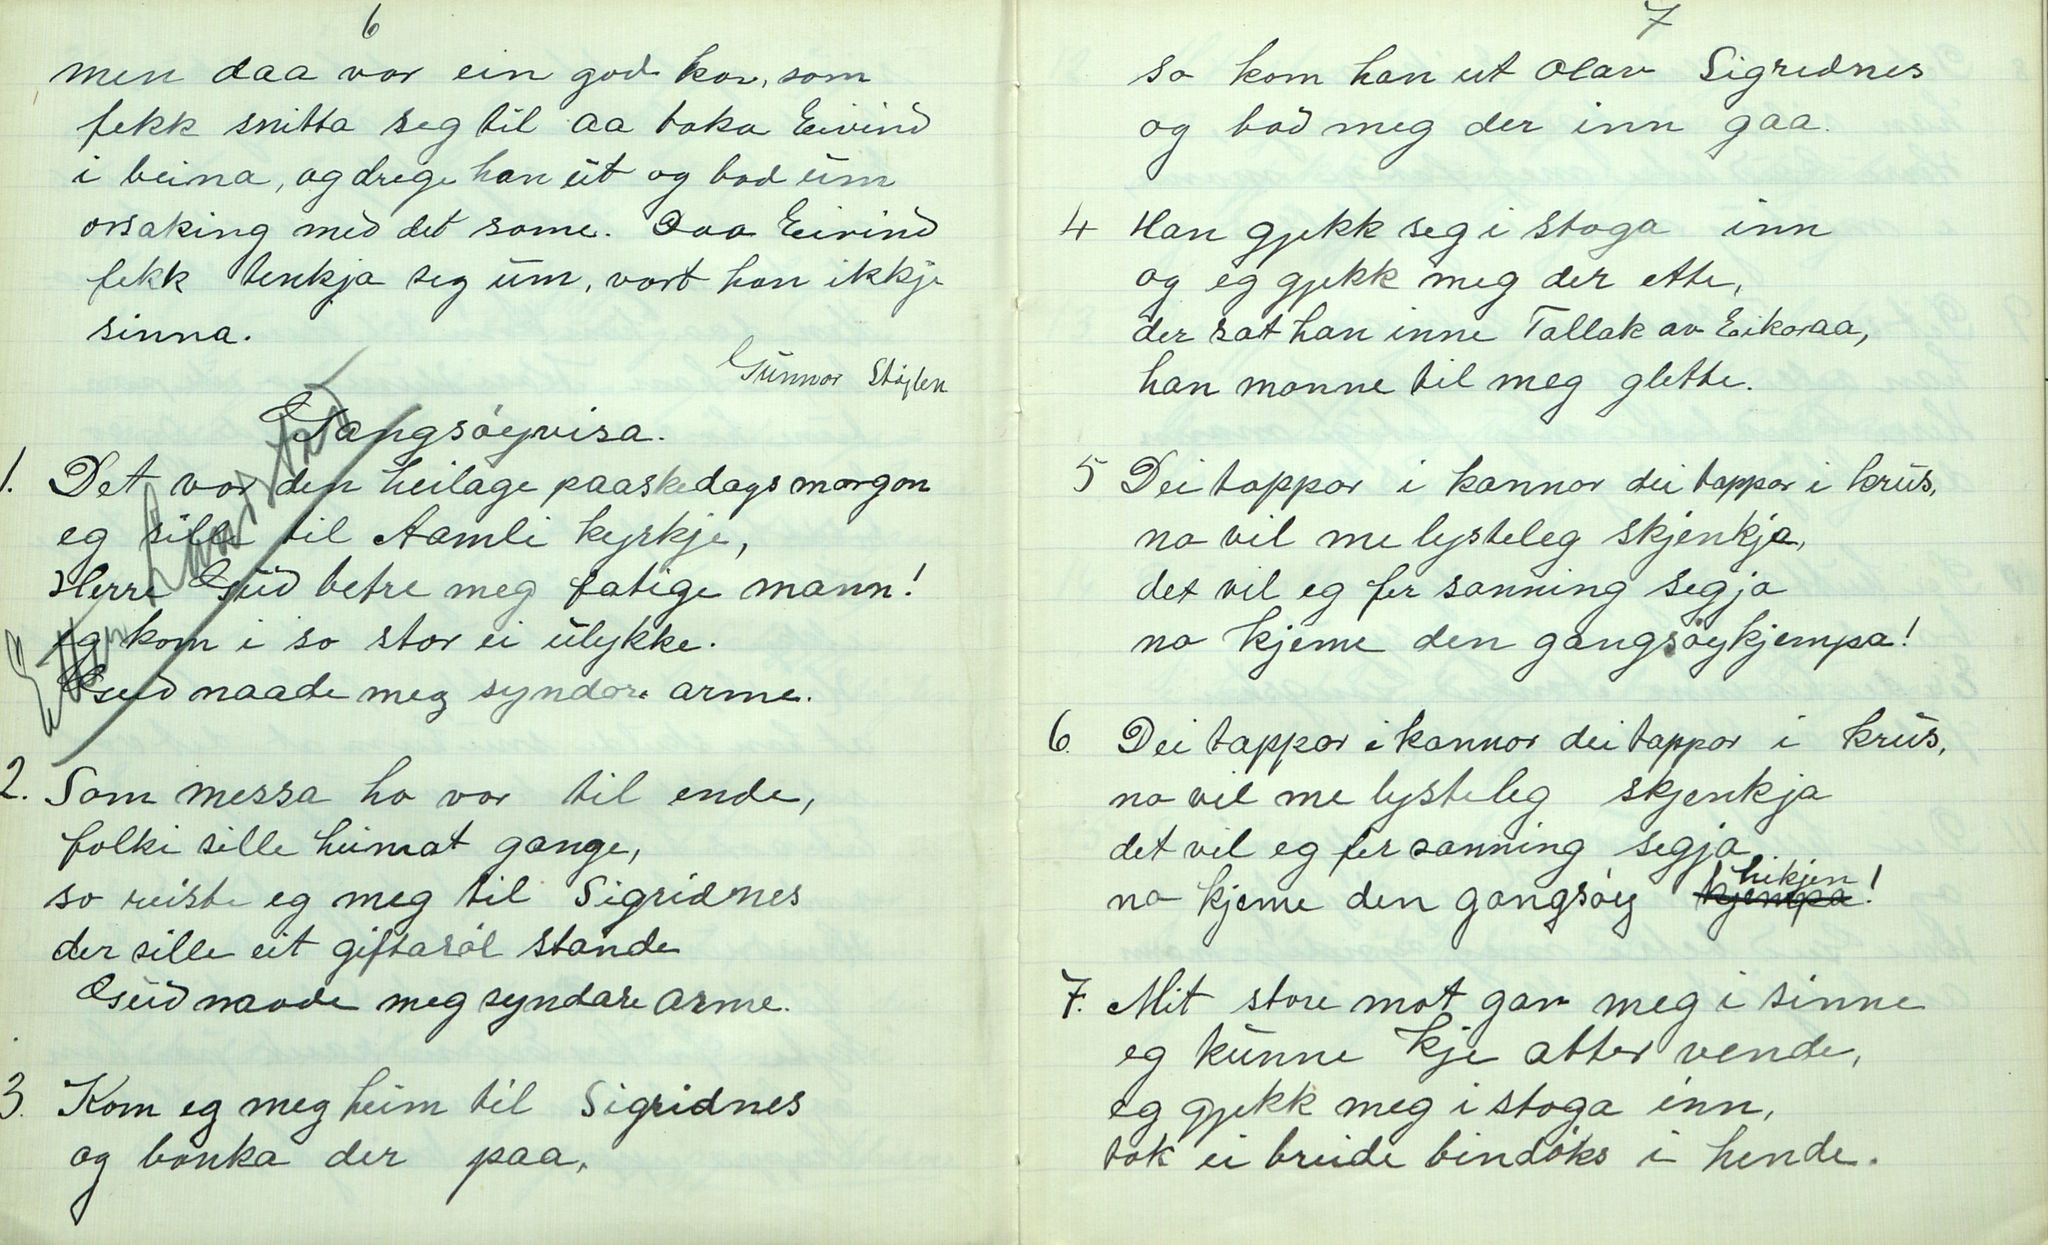 6
men daa var ein god kar, som
fekk snitta seg til aa taka Eivind
i beina, og drege han ut og bad um
orsaking med det same. Daa Eivind
fekk tenkja seg um, vart han ikkje
sinna.
Gunnar Stöylen
Gangsöyvisa.
1. Det var den heilage paaskedags morgon
eg sille til Aamli kyrkje,
Herre Gud betre meg fatige mann!
eg kom i so stor ei ulykke.
Gud naade meg syndare arme.
2. Som messa ho var til ende,
folki sille heimat gange,
so reiste eg meg til Sigridnes
der sille eit giftaröl stande
Gud naade meg syndare arme.
3. Kom eg meg heim til Sigridnes
og banka der paa,
7
so kom han ut Olav Sigridnes
og bad meg der inn gaa.
4 Han gjekk seg i stoga inn
og eg gjekk meg der ette,
der sat han inne Tallak av Eikeraa,
han monne til meg glette.
5 Dei tappar i kannor dei tappar i krus,
no vil me lysteleg skjenkja,
det vil eg fer sanning segja
no kjeme den gangsöykjempa!
6. Dei tappar i kannor dei tappar i krus,
no vil me lysteleg skjenkja
det vil eg fer sanning segja
no kjeme den gangsöy kjempa hikjen!
7. Mit store mot gav meg i sinne
eg kunne kje atter vende,
eg gjekk meg i stoga inn,
tok ei breide bindöks i hende.